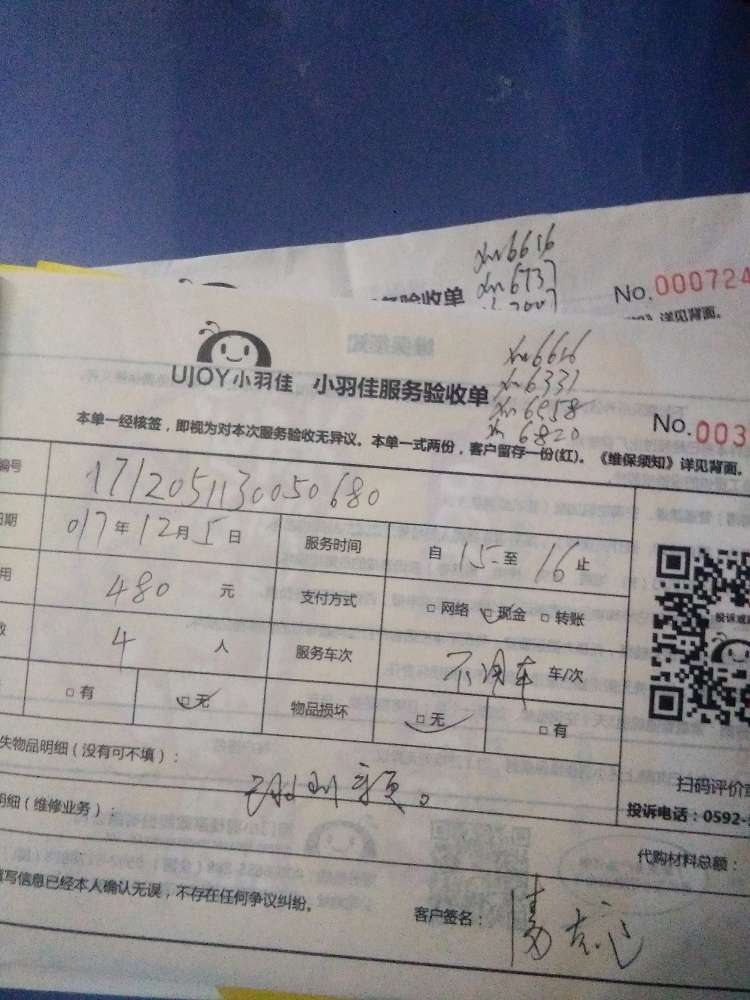 xm6616
xm6737
务验收单
No.000724
详见背面。
xm6616
xm6331
xm6958
xm6820
UJOY小羽佳 小羽佳服务验收单
No.003
本单一经核签，即视为对本次服务验收无异议。本单一式两份，客户留存一份(红)。《维保须知》详见背面。
编号 1712051130050680
日期 017年12月5日 服务时间 自15至16止
用 480元 支付方式 □网络 □现金 □转账
数 4人 服务车次 不用车 车/次
□有 □无 物品损坏 □无 □有
失物品明细（没有可不填）：
明细（维修业务）：
填写信息已经本人确认无误，不存在任何争议纠纷。
客户签名：
扫码评价
投诉电话：0592-
代购材料总额：